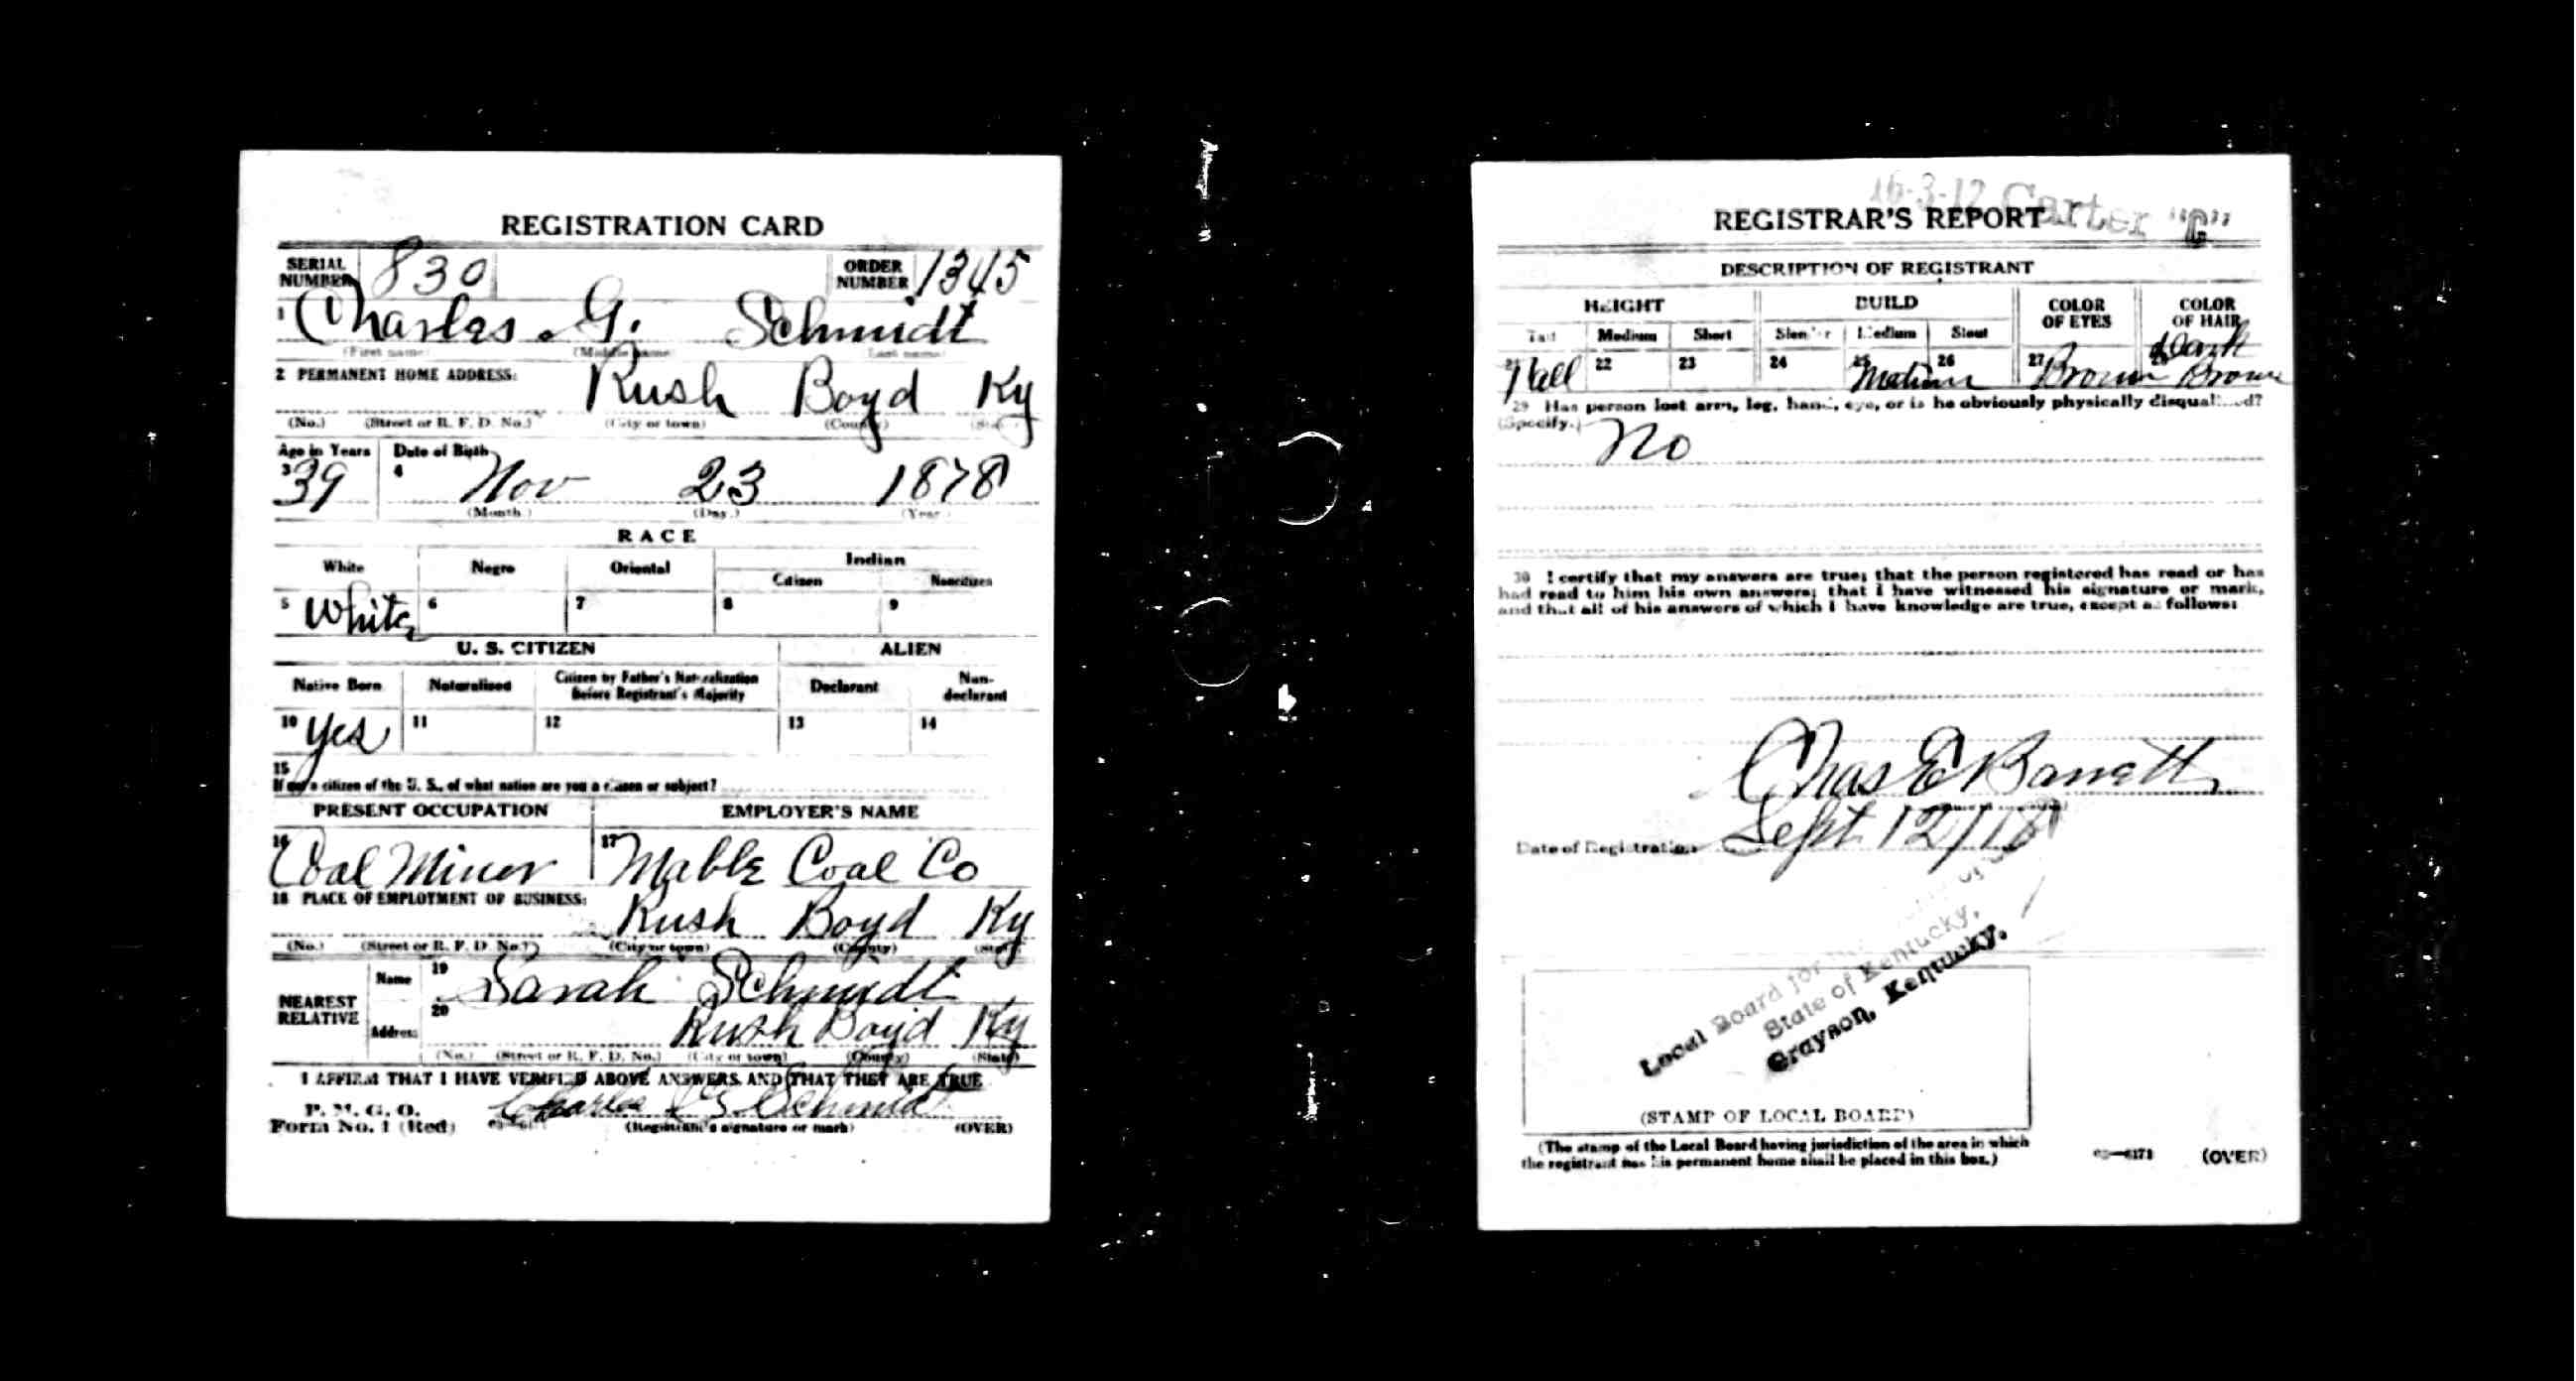 REGISTRATION CARD
SERIAL NUMBER 830 ORDER NUMBER 1345
1 Charles G. Schmidt
(First name) (Middle name) (Last name)
2 PERMANENT HOME ADDRESS: Rush Boyd Ky
(No.) (Street or R. F. D. No.) (City or town) (County) (State)
Age in Years Date of Birth
3 39 4 Nov 23 1878
(Month) (Day) (Year)
RACE
White Negro Oriental Indian
Citizen Noncitizen
5 White 6 7 8 9
U. S. CITIZEN ALIEN
Native Born Naturalized Citizen by Father's Naturalization before Registrant's Majority Declarant Non-declarant
10 Yes 11 12 13 14
15
If not a citizen of the U. S., of what nation are you a citizen or subject?
PRESENT OCCUPATION EMPLOYER'S NAME
16 Coal Miner 17 Mable Coal Co
18 PLACE OF EMPLOYMENT OF BUSINESS: Rush Boyd Ky
(No.) (Street or R. F. D. No.) (City or town) (County) (State)
NEAREST RELATIVE Name 19 Sarah Schmidt
Address 20 Rush Boyd Ky
(No.) (Street or R. F. D. No.) (City or town) (County) (State)
I AFFIRM THAT I HAVE VERIFIED ABOVE ANSWERS AND THAT THEY ARE TRUE
P. M. G. O.
Form No. 1 (Red) Charles G Schmidt
(Registrant's signature or mark) (OVER)
16-3-12 Carter "C"
REGISTRAR'S REPORT
DESCRIPTION OF REGISTRANT
HEIGHT BUILD COLOR OF EYES COLOR OF HAIR
Tall Medium Short Slender Medium Stout
21 Tall 22 23 24 25 Medium 26 27 Brown 28 Dark Brown
29 Has person lost arm, leg, hand, eye, or is he obviously physically disqualified?
(Specify.) No
30 I certify that my answers are true; that the person registered has read or has
had read to him his own answers; that I have witnessed his signature or mark,
and that all of his answers of which I have knowledge are true, except as follows:
Chas E Barrett
Date of Registration Sept 12/18
Local Board for
State of Kentucky,
Grayson, Kentucky.
(STAMP OF LOCAL BOARD)
(The stamp of the Local Board having jurisdiction of the area in which
the registrant has his permanent home shall be placed in this box.)
(OVER)